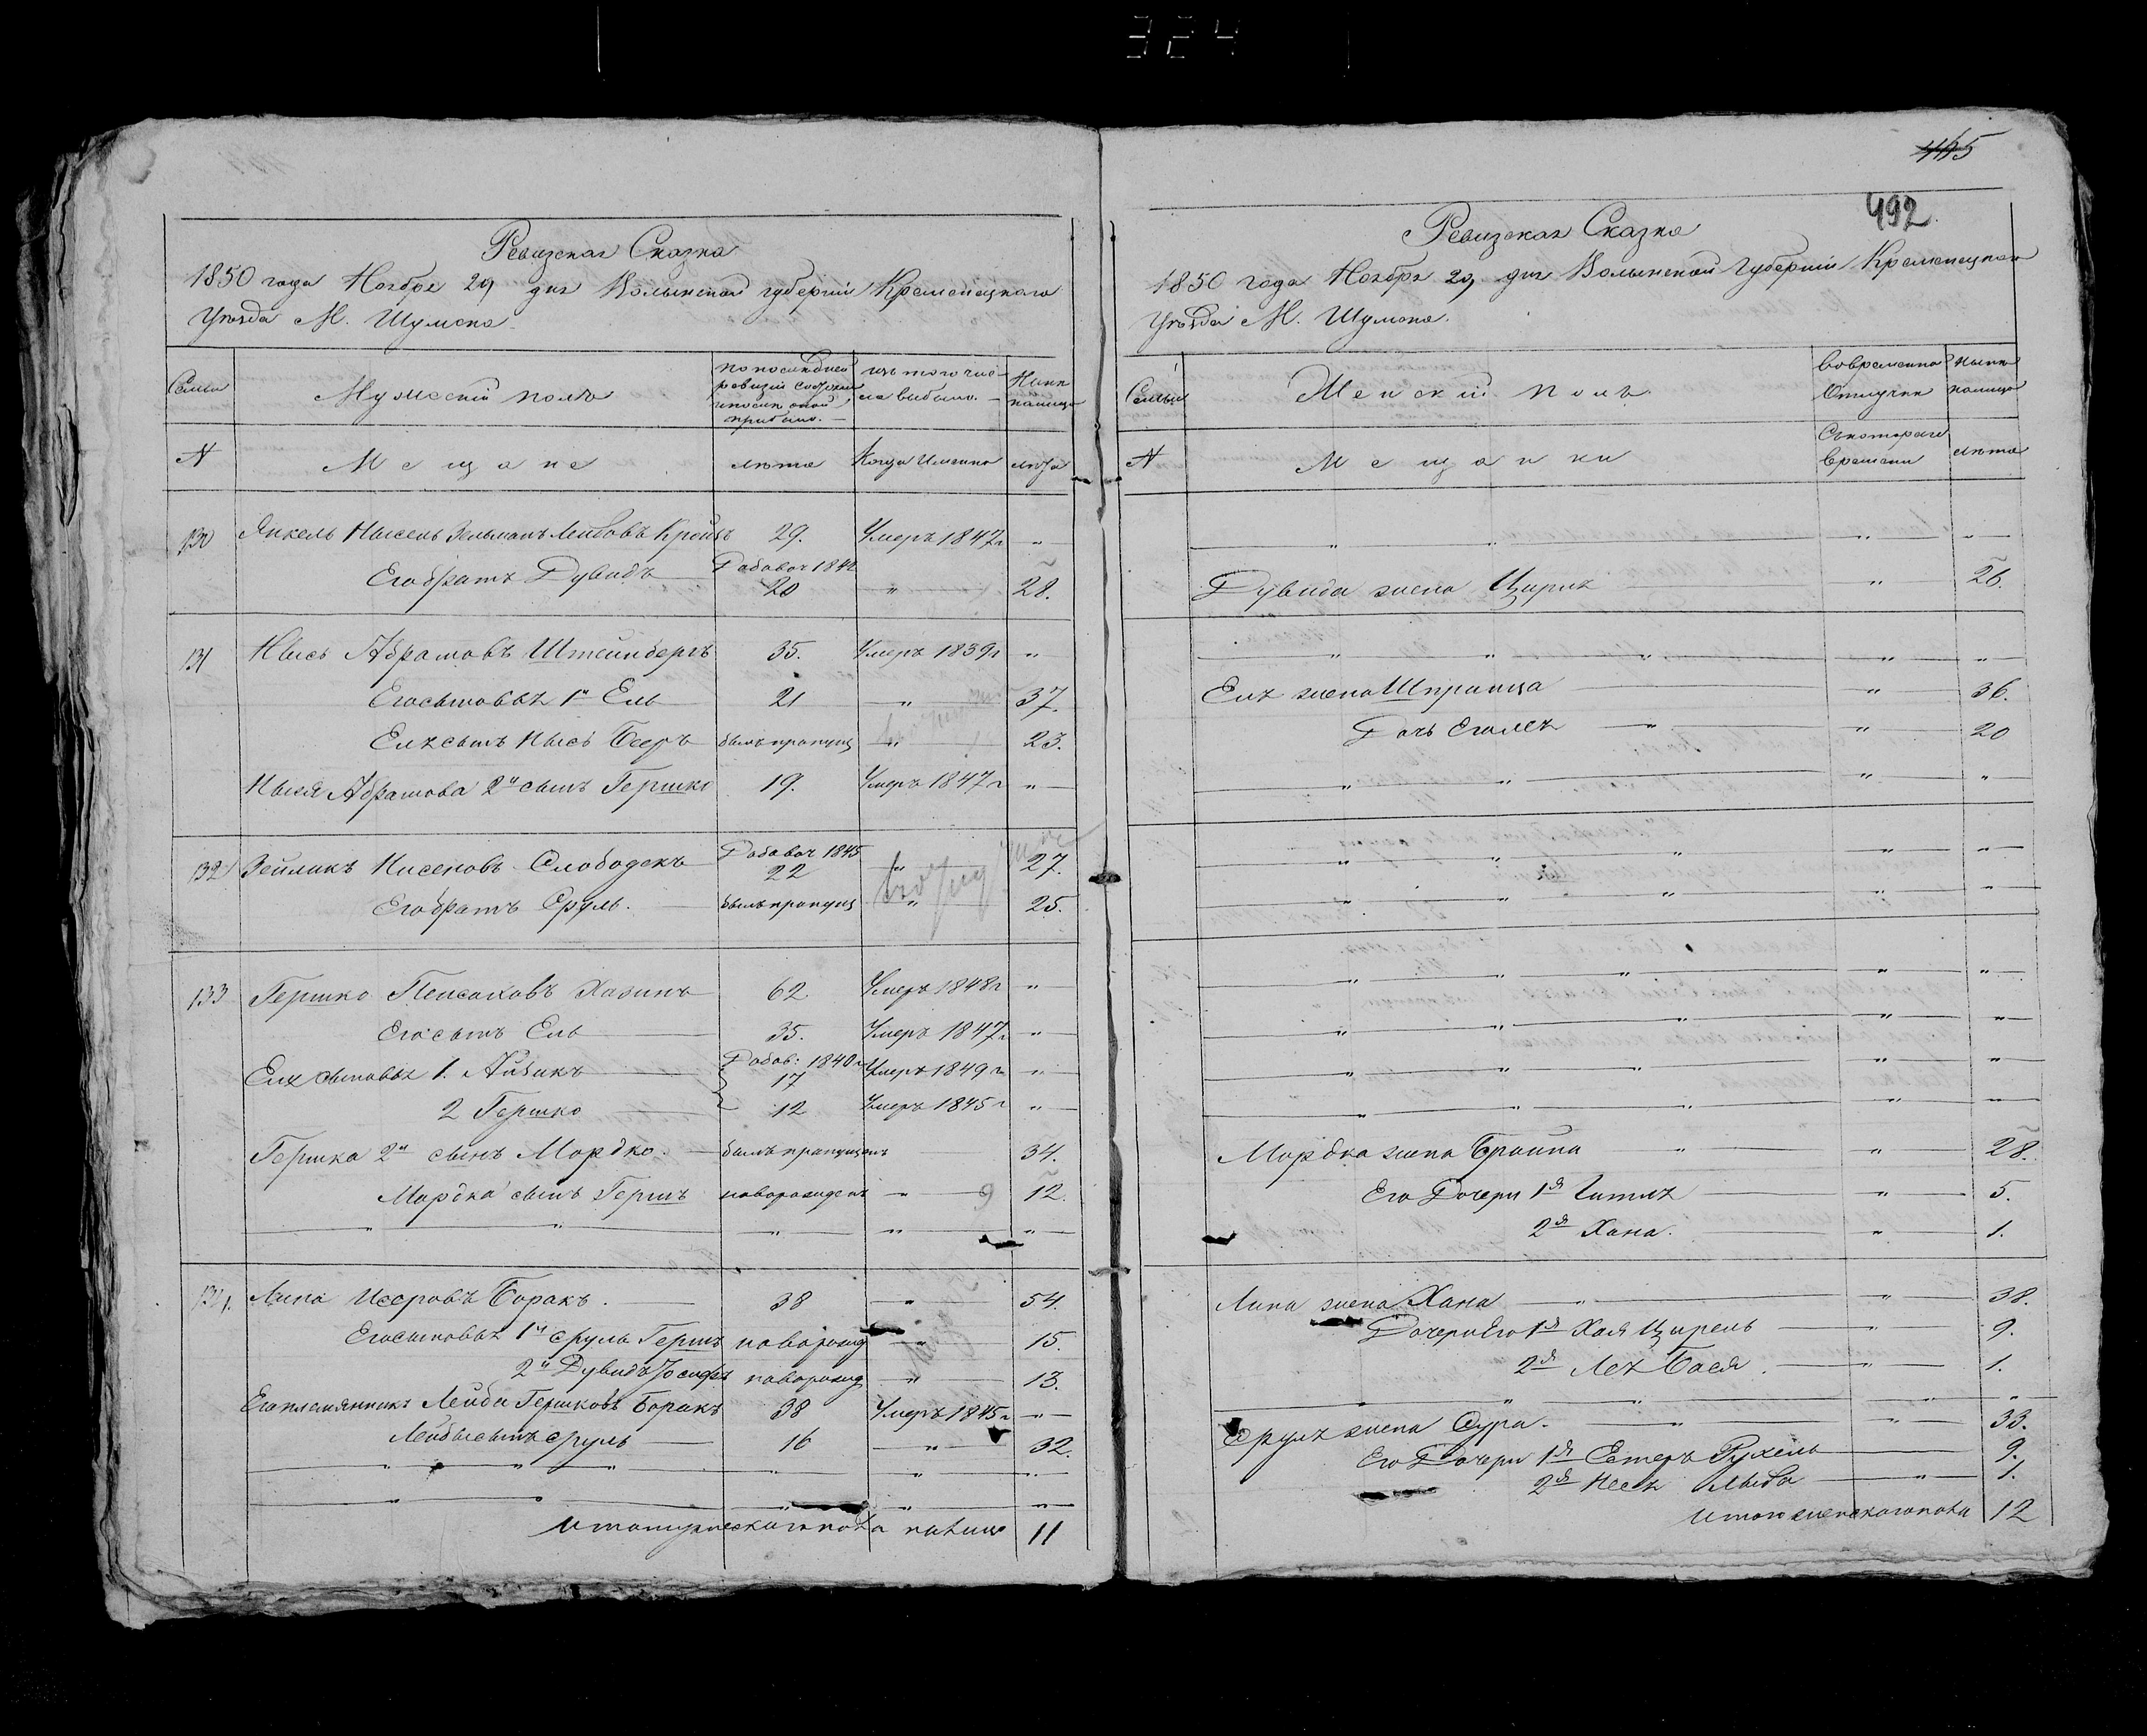 324
Ревизская Сказка
1850 года Ноября 29 дня Волынской губернии Кременецкаго
Уезда М. Шумска
Семьи
Мужеский полъ
по последней ревизии состояло и после оной прибыло.
изъ того числа выбыло.
Ныне налицо
№
Мещане
лета
Когда Именно
лета
130 Янкель Нысень Зельманъ Лейбовъ Кройзъ 29. Умеръ 1847г "
Его братъ Дувидъ Добавоч 1842 20 " 28.
131 Нысь Абрамовъ Штейнбергъ 35. Умеръ 1839г "
Его сыновья 1й Ель 21 " 37.
Еля сынъ Нысь Бееръ былъ пропущ " 23.
Ныся Абрамова 2й сынъ Гершко 19. Умеръ 1847г "
132 Зейликъ Нисеновъ Слободекъ Добавоч 1845 22 " 27.
Его братъ Сруль. былъ пропущ " 25.
133 Гершко Пейсаховъ Хазинъ 62. Умеръ 1848г "
Его сынъ Ель 35. Умеръ 1847г "
Еля сыновья 1. Айзикъ Добав: 1840г 17 Умеръ 1849г "
2 Гершко 12 Умеръ 1845г "
Гершка 2й сынъ Мордко. былъ пропущенъ 34.
Мордка сынъ Гершъ новорожденъ " 9 12.
134. Липа Исеровъ Боракъ. 38 " 54.
Его сыновья 1й Сруль Гершъ новорожд " 15.
2й Дувидъ Іосифъ новорожд " 13.
Его племянникъ Лейба Гершковъ Боракъ 38 Умеръ 1845г "
Лейбы сынъ Сруль 16 " 32.
Итого мужескаго пола налицо 11
445
492
Ревизская Сказка
1850 года Ноября 29 дня Волынской Губернии Кременецкаго
Уезда М. Шумска.
Семьи
Женский полъ
Во временной Отлучке
Ныне налицо
№
Мещанки
Съ котораго времени
лета
Дувида жена Цирля " 26.
Еля жена Шпринца " 36.
Дочь его Лея " 20
Мордка жена Брайна " 28.
Его Дочери 1я Гитля " 5.
2я Хана. " 1.
Липа жена Хана " 38.
Дочери Его 1я Хая Цирель " 9.
2я Лея Бася. " 1.
Сруля жена Сура. " 33.
Его Дочери 1я Естеръ Рухель 9.
2я Неся Лыба " 1.
Итого женскаго пола 12